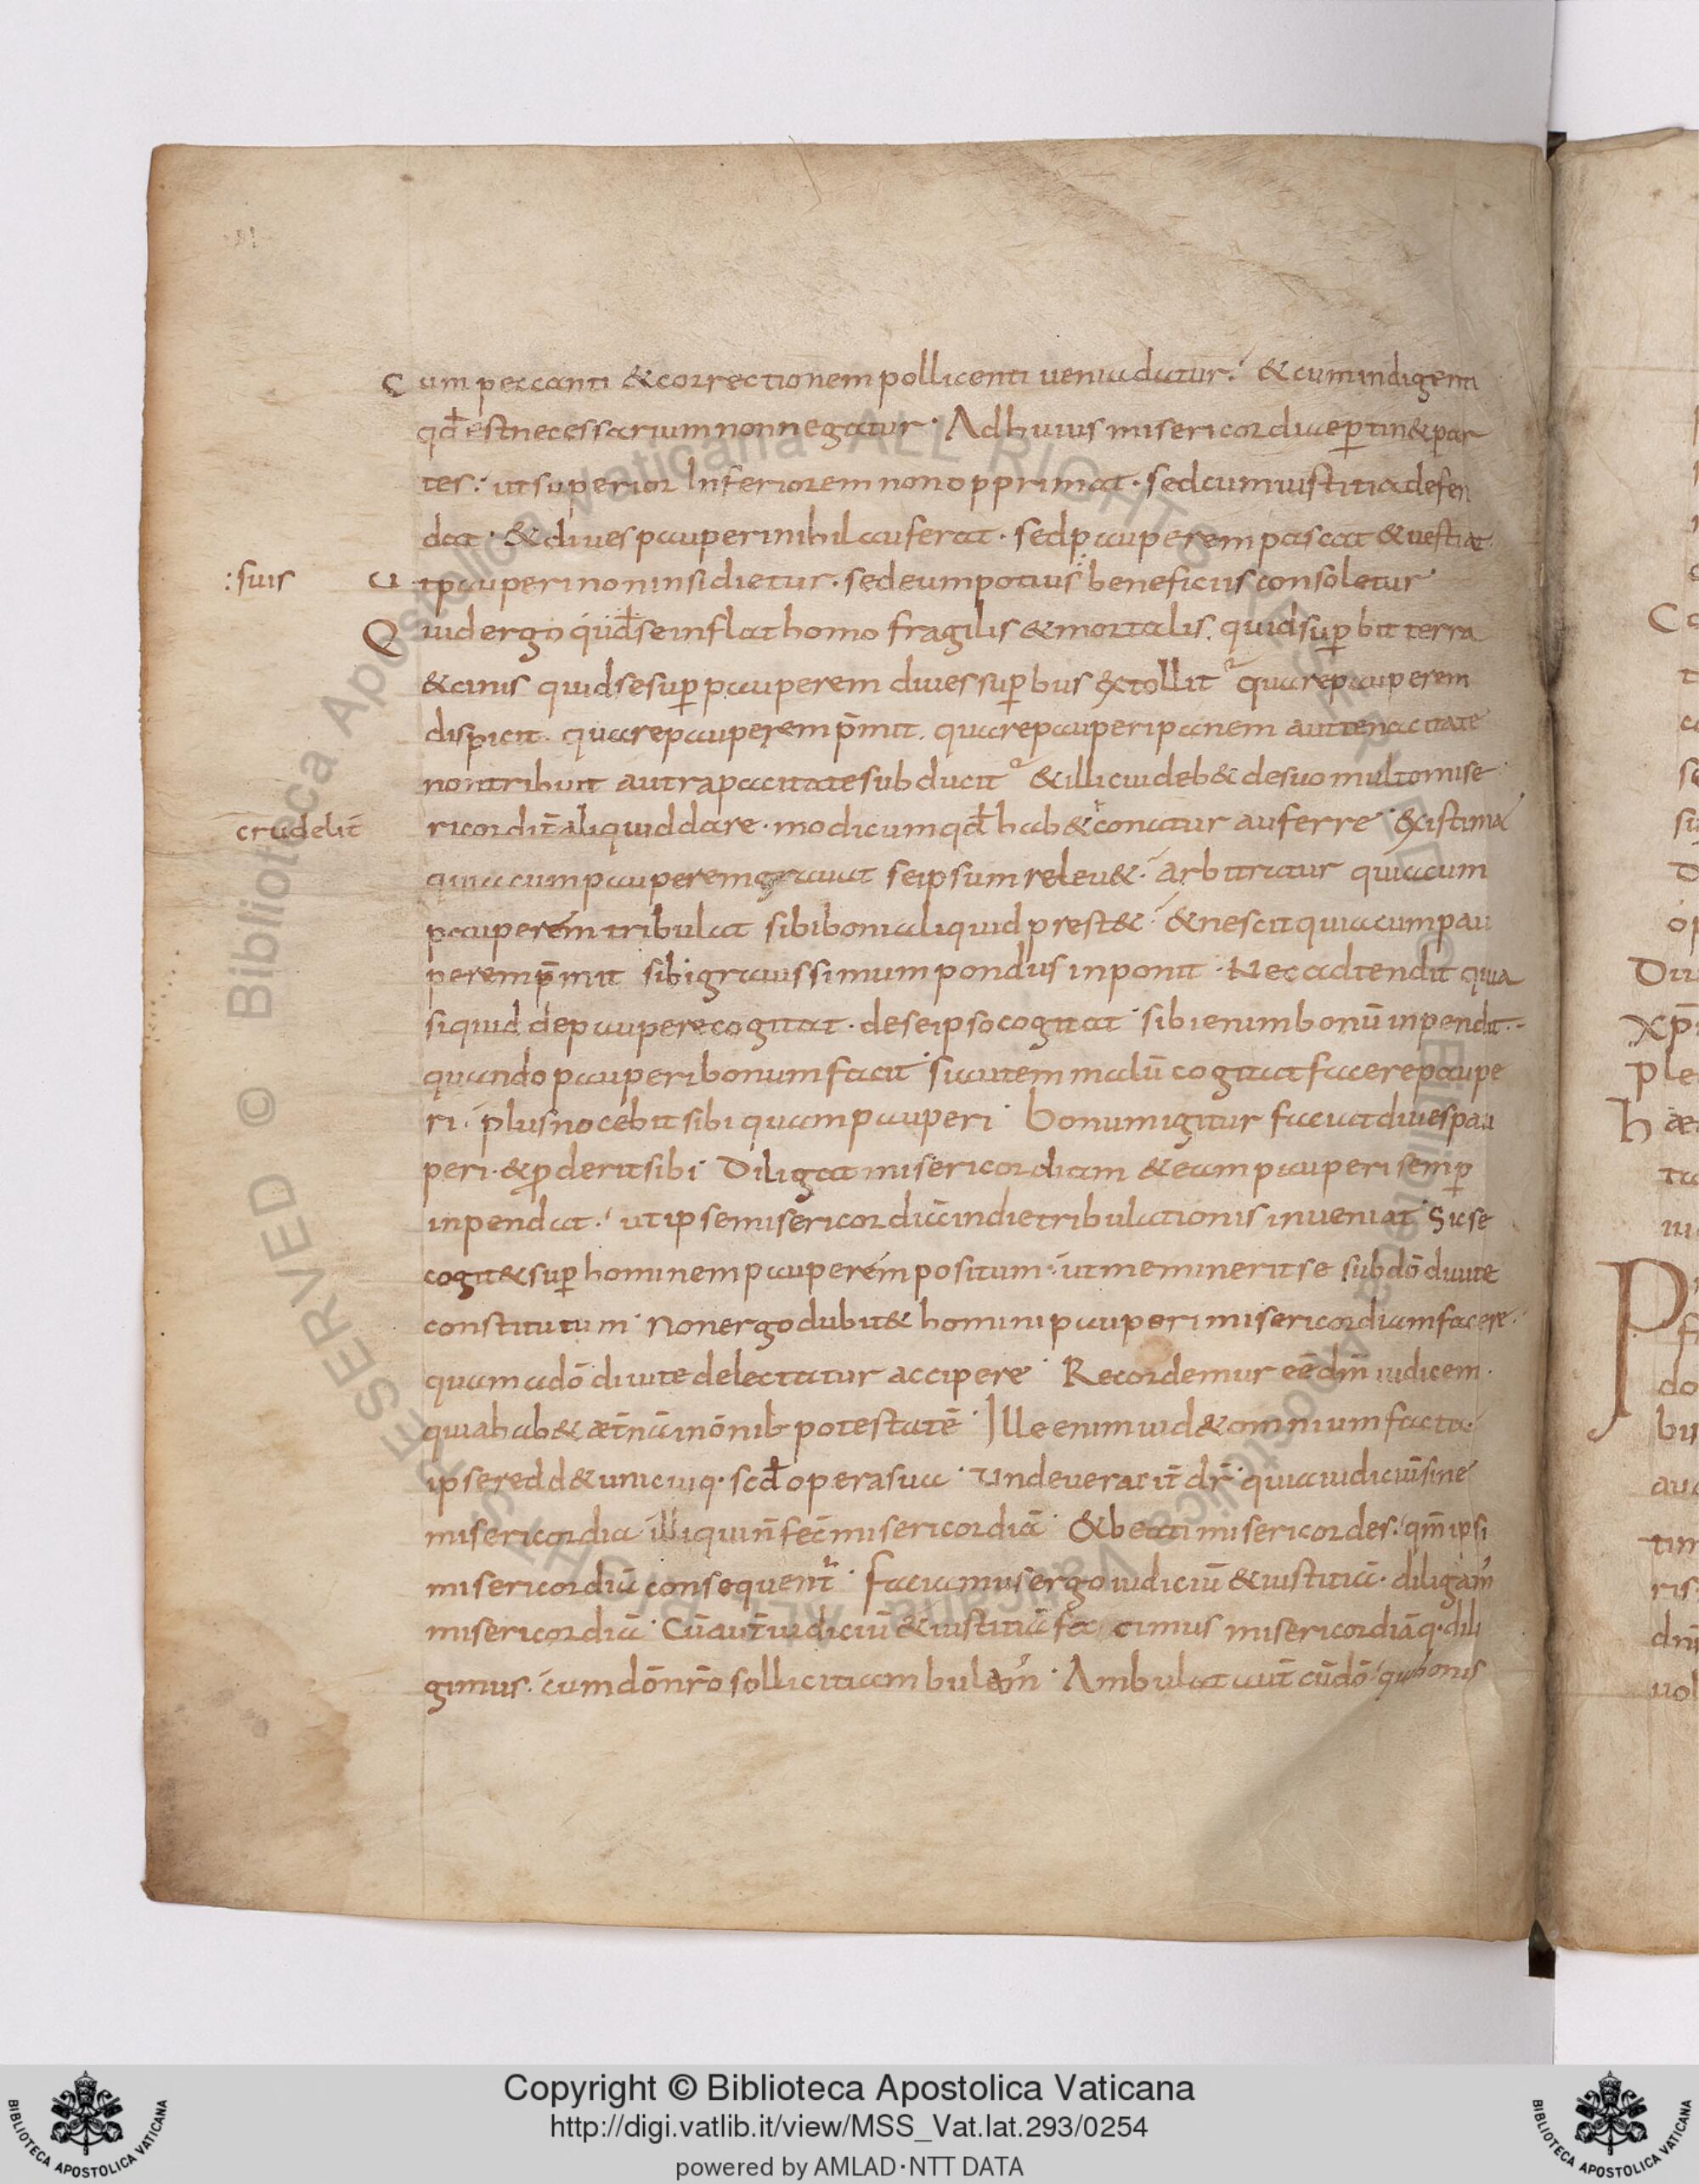 Cum peccanti & correctionem pollicenti uenia datur. & cum indigenti
qđ est necessarium non negatur. Ad huius misericordiae ꝑtin& par
tes: ut superior Inferiorem non opprimat. sed cum iustitia defen
dat. & diues pauperi nihil auferat. sed pauperem pascat & uestiat.
:suis
Ut pauperi non insidietur. sed eum potius : beneficiis consoletur.
Quid ergo quid se inflat homo fragilis & mortalis. quid suꝑbit terra
& cinis quid se suꝑ pauperem diues suꝑbus extollit quare pauperem
dispicit. quare pauperem p̄mit. quare pauperi panem aut tenacitate
non tribuit aut rapacitate subducit & illi cui deb& de suo multo mise
crudelit̄
ricordit̄ aliquid dare. modicum qđ hab& conatur auferre. Existimat
quia cum pauperem grauat seipsum releu&. Arbitratur quia cum
pauperem tribulat sibi boni aliquid prest&. & nescit quia cum pau
perem p̄mit sibi grauissimum pondus inponit. Nec adtendit quia
si quid de paupere cogitat. de se ipso cogitat. sibi enim bonū inpendit.
quando pauperi bonum facit. si autem malū cogitat facere paupe
ri. plus nocebit sibi quam pauperi. bonum igitur faciat diues pau
peri. & ꝓderit sibi. Diligat misericordiam & eam pauperi semꝑ
inpendat. ut ipse misericordiā in die tribulationis inueniat. Sic se
cogit& suꝑ hominem pauperem positum. ut meminerit se sub dō diuite
constitutum. Non ergo dubit& homini pauperi misericordiam facere.
quam a dō diuite delectatur accipere. Recordemur eē dn̄m iudicem.
quia hab& æt̄nā in ōnib; potestatē. Ille enim uid& omnium facta.
ipse redd& unicuiq. scđ opera sua. Unde ueracit̄ dr̄. quia iudiciū sine
misericordia illi qui n̄ fec̄ misericordiā. & beati misericordes. qm̄ ipsi
misericordiā consequent̄. faciamus ergo iudiciū & iustitiā. diligam'
misericordiā. Cū aut̄ iudiciū & iustitiā fa cimus misericordiāq. dili
gimus. cum dō nr̄o solliciti ambulam'. Ambulat aut̄ cū dō. qui bonis
C
Copyright © Biblioteca Apostolica Vaticana
http://digi.vatlib.it/view/MSS_Vat.lat.293/0254
powered by AMLAD·NTT DATA